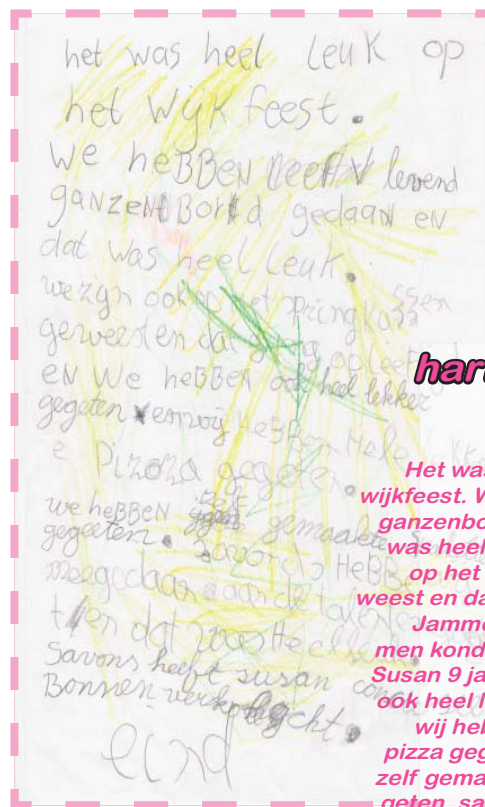 het was heel leuk op
het wijk feest.
we heBBeN levend
gaNzeNtBord gedaaN eN
dat was heel leuk.
we zijn ook op het springkussen
geweest en dat
eN we heBBeN ook heel lekker
gegeten en wij HeBBeN Hele
e pizoza gegeten.
we heBBeN gemaakte
gegeeten. savonds HeBBe
meegedaan aan de
t en dat was Heel
savons heeft susan
Bonnen verkocht.
eind
har
Het was
wijkfeest. W
ganzenbo
was heel
op het
weest en da
Jamme
men kond
Susan 9 ja
ook heel l
wij heb
pizza geg
zelf gema
geten, sa